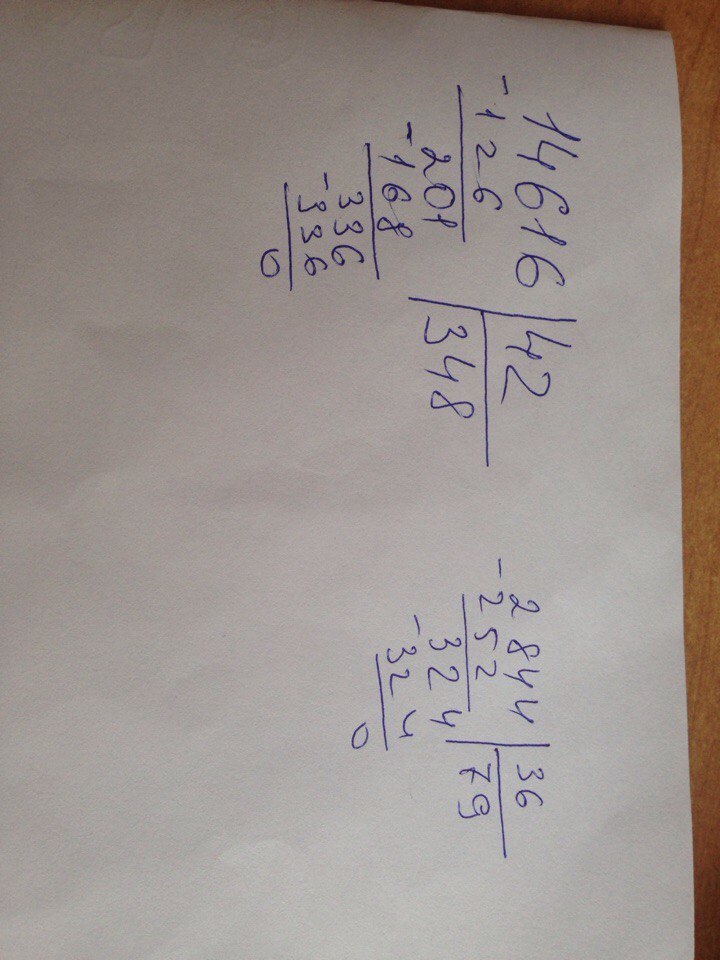 14616 42
-126 348
201
-168
336
-336
0
-2844 36
252 79
324
-324
0